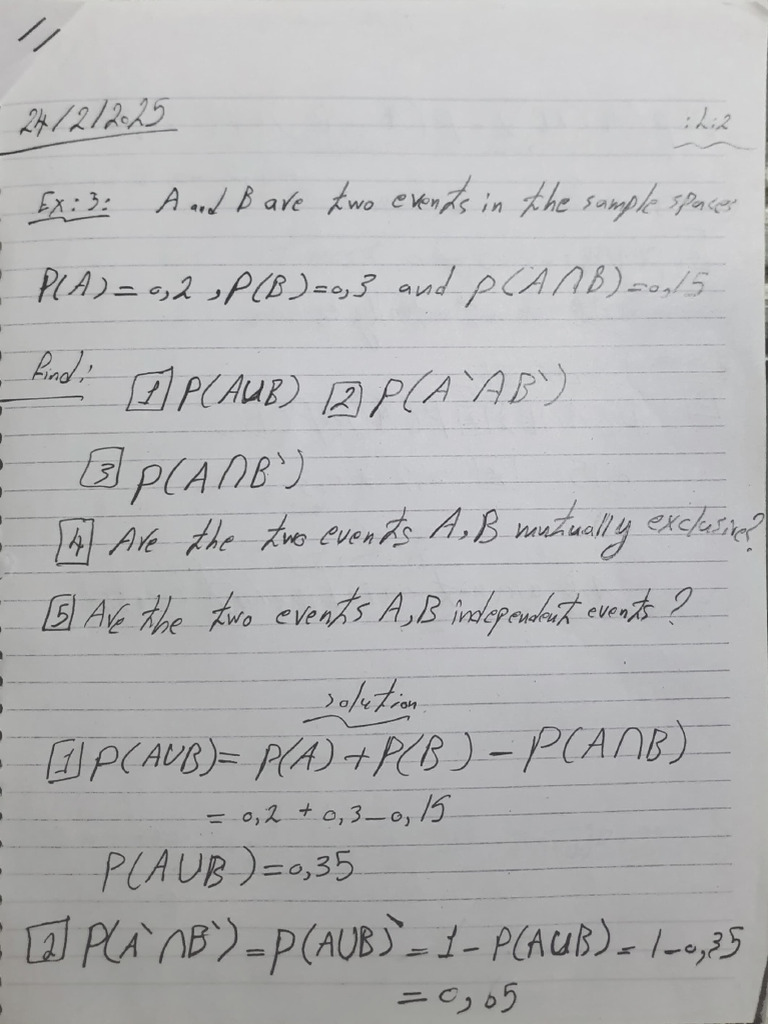 24/2/2025
:L:2
Ex:3: A and B are two events in the sample spaces
P(A)=0,2 ,P(B)=0,3 and P(A∩B)=0,15
find:
[1] P(AUB) [2] P(A`∩B`)
[3] P(A∩B`)
[4] Are the two events A,B mutually exclusive?
[5] Are the two events A,B independent events?
solution
[1] P(AUB)= P(A)+P(B) - P(A∩B)
= 0,2 + 0,3-0,15
P(AUB)=0,35
[2] P(A`∩B`)=P(AUB)`= 1- P(AUB)= 1-0,35
= 0,65